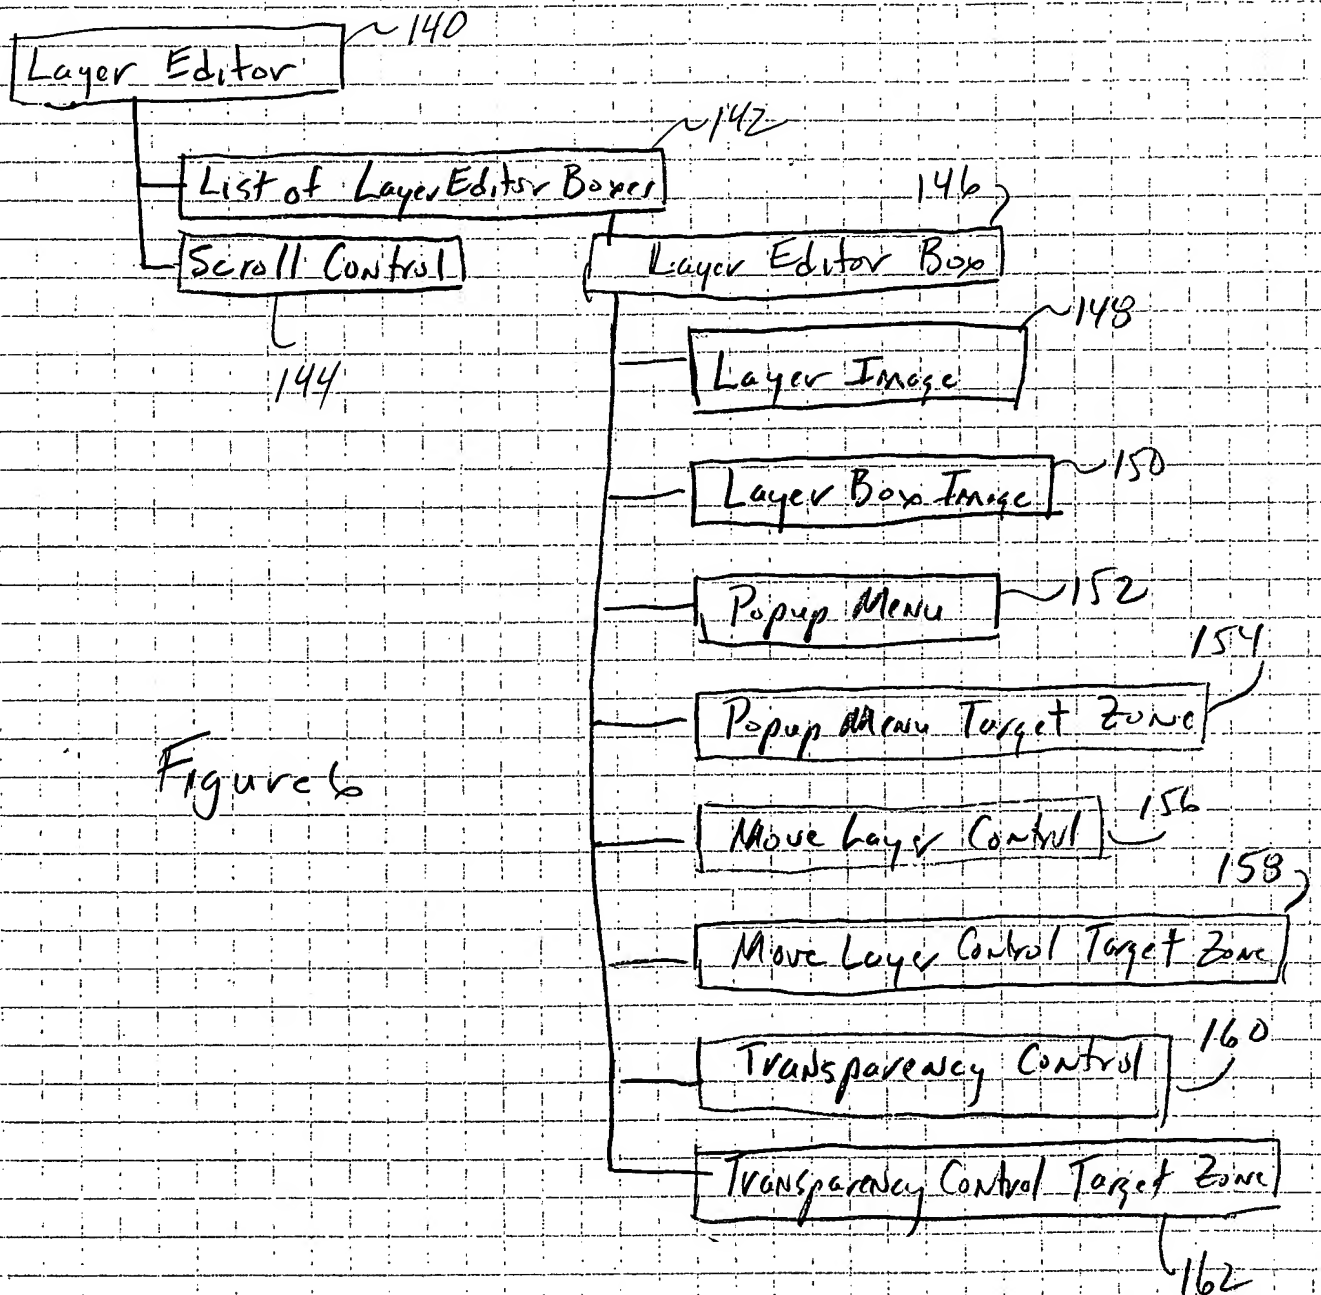 140
Layer Editor
142
List of Layer Editor Boxes
146
Scroll Control
Layer Editor Box
148
144
Layer Image
150
Layer Box Image
152
Popup Menu
154
Popup Menu Target Zone
Figure 6
156
Move Layer Control
158
Move Layer Control Target Zone
160
Transparency Control
Transparency Control Target Zone
162